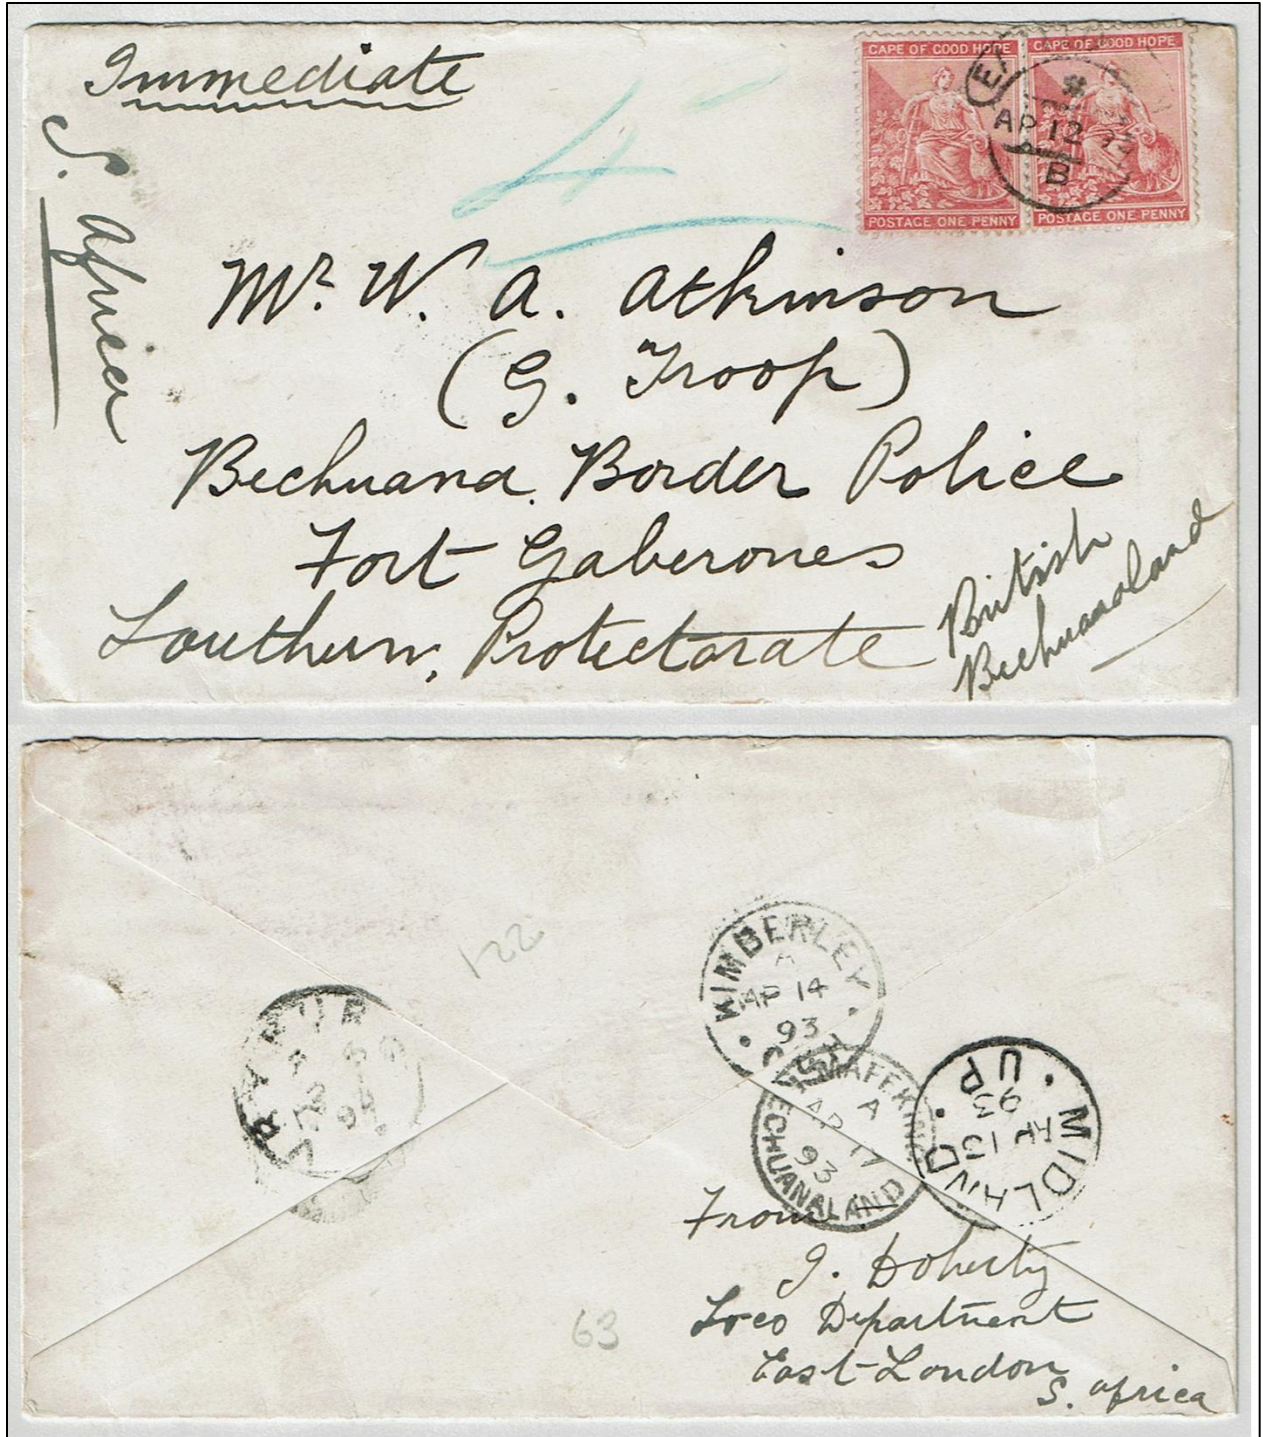 Immediate
S. Africa
CAPE OF GOOD HOPE
POSTAGE ONE PENNY
CAPE OF GOOD HOPE
POSTAGE ONE PENNY
AP 12
B
4
Mr. W. A. Atkinson
(G. Troop)
Bechuana Border Police
Fort Gaberones
Southern, Protectorate
British
Bechuanaland
122
KIMBERLEY
AP 14
93
MAFEKING
A
AP 17
93
BECHUANALAND
MIDLAND
UP
AP 13
93
VRYBURG
From
J. Doherty
Loco Department
East-London
S. Africa
63